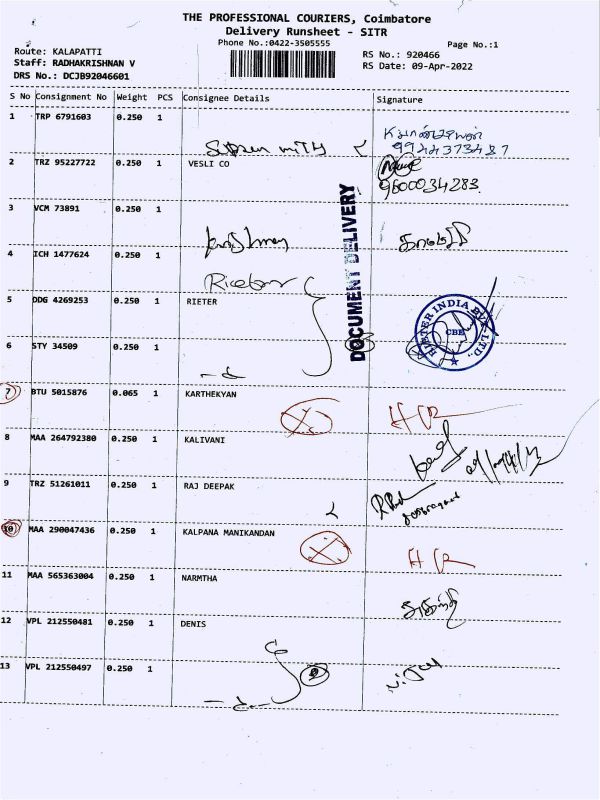 THE PROFESSIONAL COURIERS, Coimbatore
Delivery Runsheet - SITR
Phone No.:0422-3505555
Page No.:1
Route: KALAPATTI
Staff: RADHAKRISHNAN V
DRS No.: DCJB92046601
RS No.: 920466
RS Date: 09-Apr-2022
S No Consignment No Weight PCS Consignee Details Signature
1 TRP 6791603 0.250 1
2 TRZ 95227722 0.250 1 VESLI CO
9600034283
3 VCM 73891 0.250 1
4 ICH 1477624 0.250 1
DOCUMENT DELIVERY
5 DDG 4269253 0.250 1 RIETER
RIETER INDIA PVT. LTD.,
CBE
6 STY 34509 0.250 1
7 BTU 5015876 0.065 1 KARTHEKYAN
8 MAA 264792380 0.250 1 KALIVANI
9 TRZ 51261011 0.250 1 RAJ DEEPAK
10 MAA 290047436 0.250 1 KALPANA MANIKANDAN
11 MAA 565363004 0.250 1 NARMTHA
12 VPL 212550481 0.250 1 DENIS
2
13 VPL 212550497 0.250 1